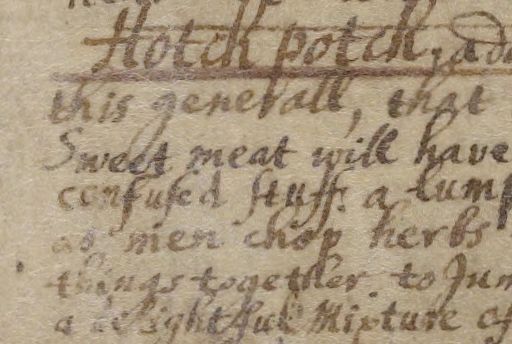 Hotch potch, add
this generall, that
Sweet meat will have
confused stuff: a lump
as men chop herbs
things together. to Jum
a delightful Mixture of